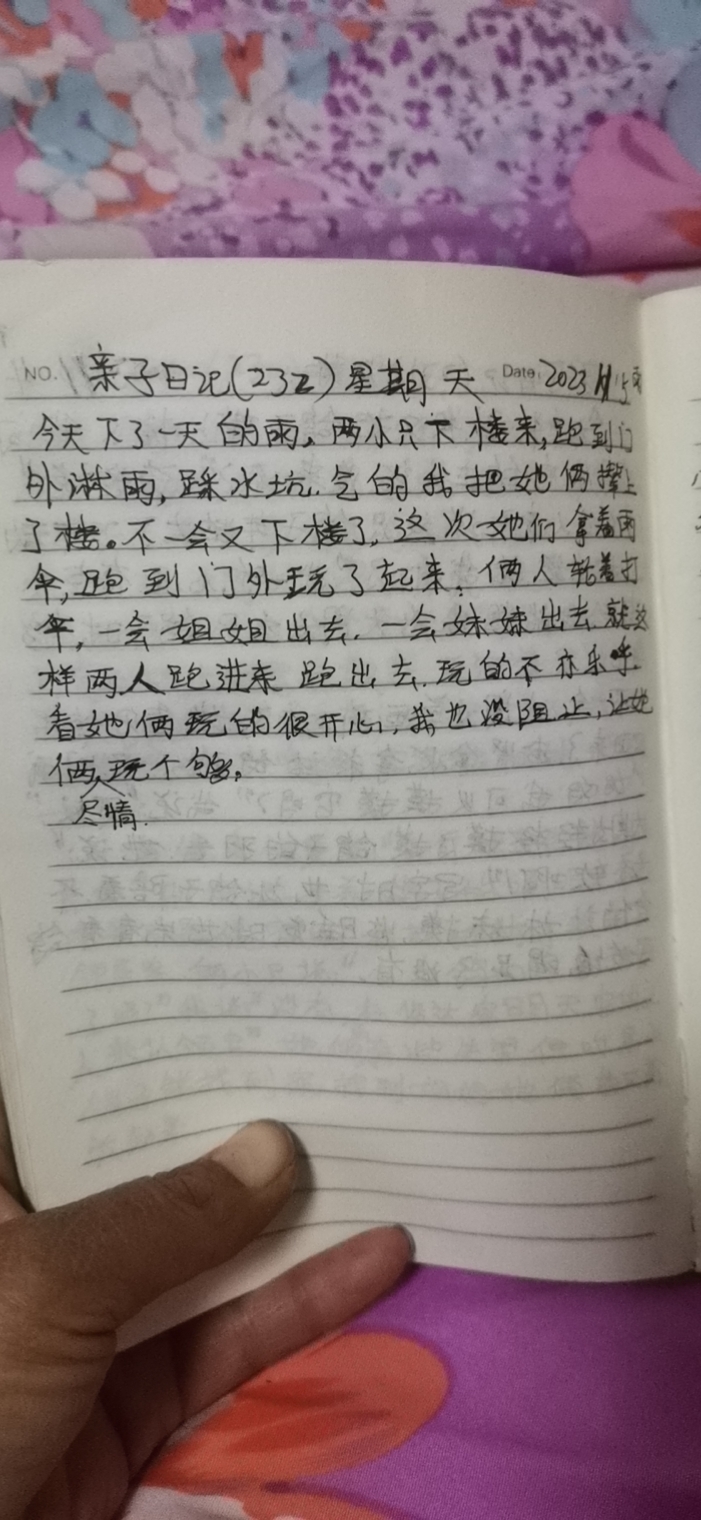 NO. 亲子日记(232) 星期天 Date 2023 11 5 雨
今天下了一天的雨。两小只下楼来,跑到门
外淋雨,踩水坑.气的我把她俩撵上
了楼。不一会又下楼了,这次她们拿着雨
伞,跑到门外玩了起来,俩人轮着打
伞,一会姐姐出去.一会妹妹出去 就这
样两人跑进来 跑出去.玩的不亦乐乎.
看她俩玩的很开心,我也没阻止,让她
俩玩个够。
尽情.